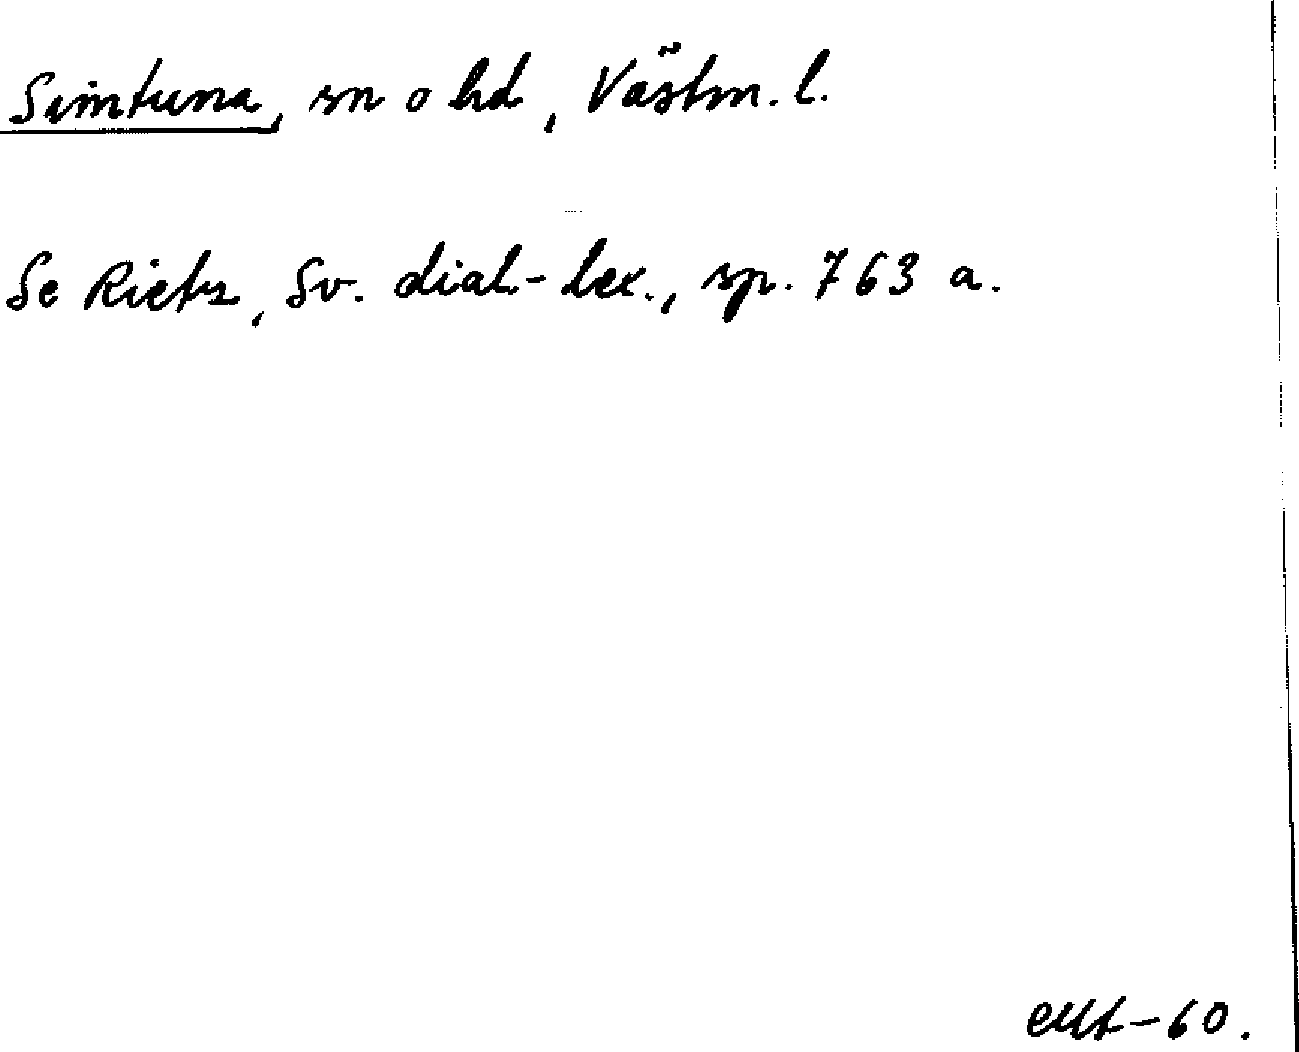 Simtuna, sn o hd, Västm. l.
Se Rietz, Sv. dial.-lex., sp. 763 a.
-60.